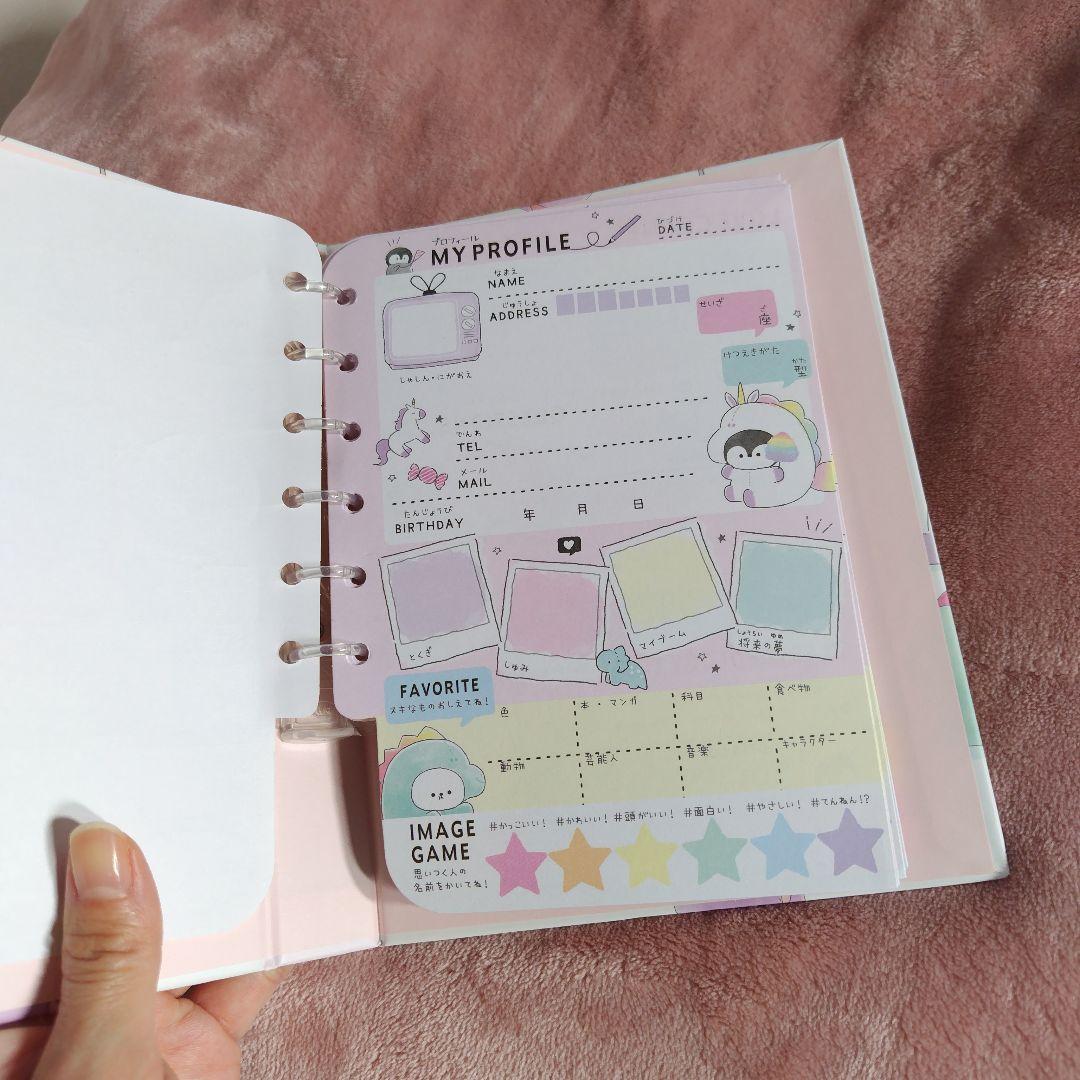 プロフィール
MY PROFILE
ひづけ
DATE
なまえ
NAME
じゅうしょ
ADDRESS
せいざ
ざ
座
けつえきがた
かた
型
しゃしん・にがおえ
でんわ
TEL
メール
MAIL
たんじょうび
BIRTHDAY 年 月 日
とくぎ
しゅみ
マイブーム
しょうらい ゆめ
将来の夢
FAVORITE
スキなものおしえてね!
色
本・マンガ
科目
食べ物
動物
芸能人
音楽
キャラクター
IMAGE
GAME
思いつく人の
名前をかいてね!
#かっこいい! #かわいい! #頭がいい! #面白い! #やさしい! #てんねん!?